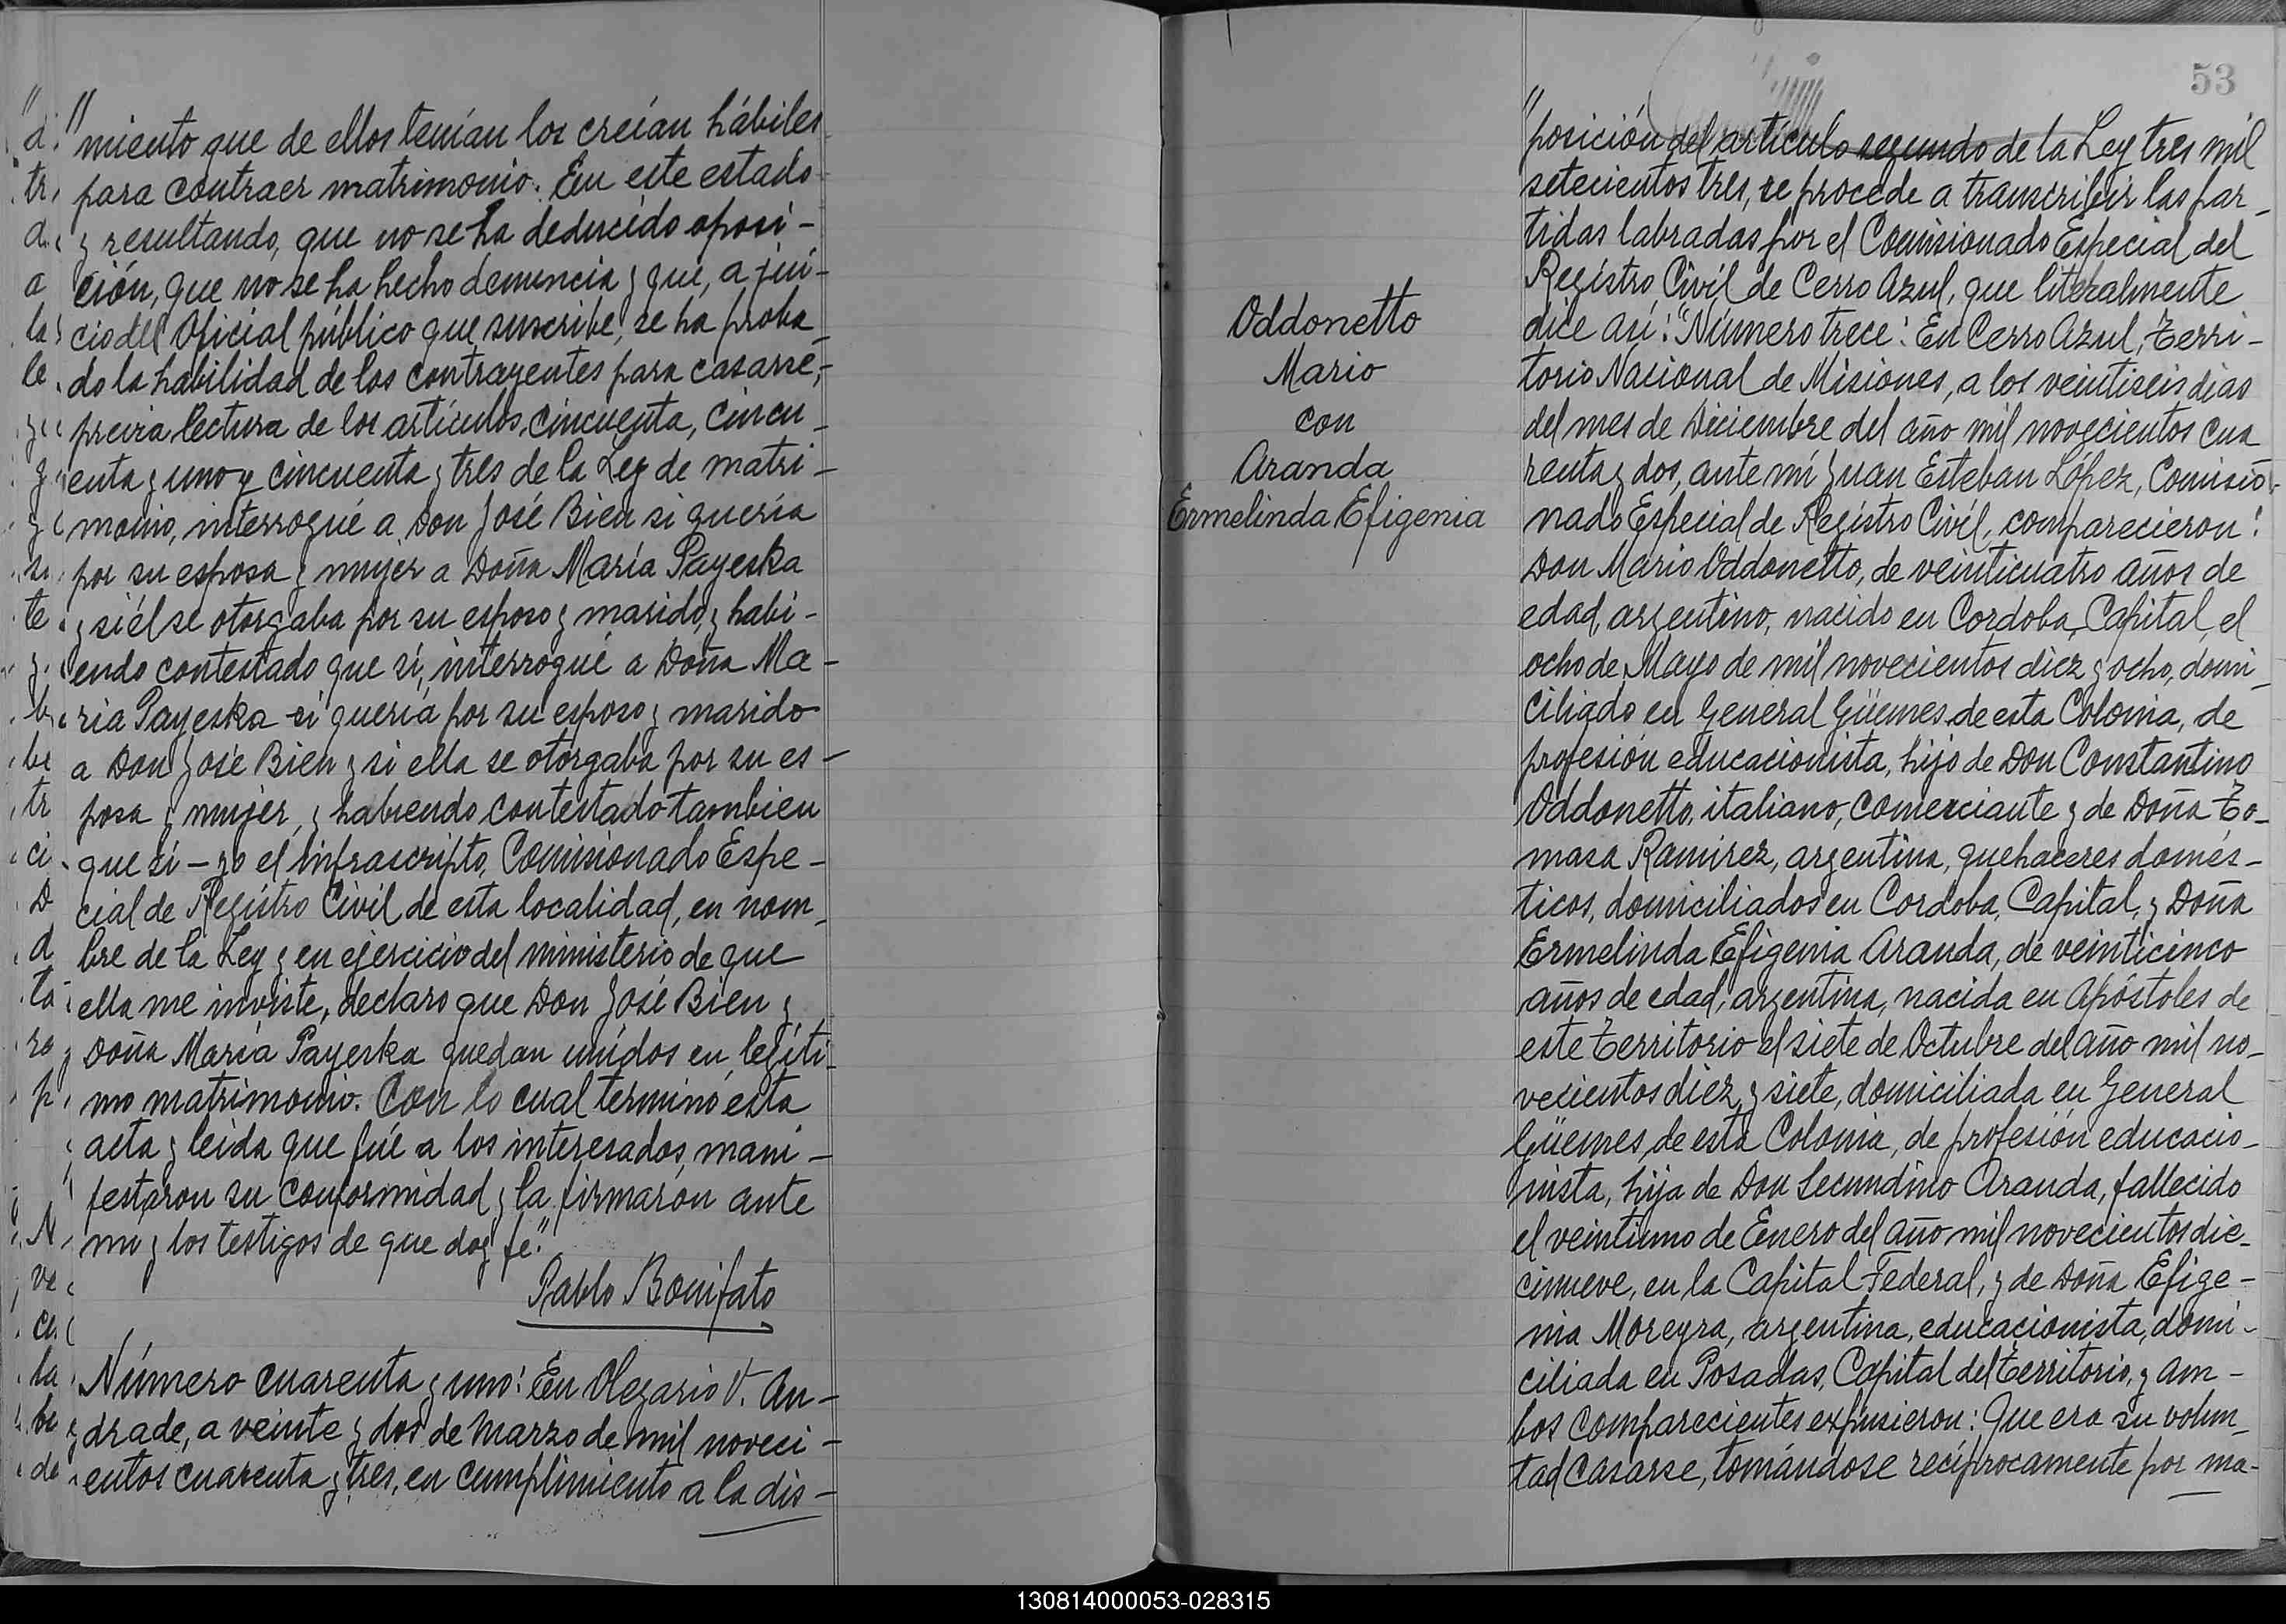 "miento que de ellos tenían los creían hábiles
para contraer matrimonio. En este estado
y resultando, que no se ha deducido oposi-
ción, que no se ha hecho denuncia y que, a jui-
cio del Oficial público que suscribe, se ha proba_
do la habilidad de los contrayentes para casarse,-
previa lectura de los artículos cincuenta, cincu_
enta y uno y cincuenta y tres de la Ley de matri-
monio, interrogué a Don José Bien si quería
por su esposa y mujer a Doña María Payeska
y si él se otorgaba por su esposo y marido, y habi-
endo contestado que sí, interrogué a Doña Ma-
ría Payeska si quería por su esposo y marido
a Don José Bien y si ella se otorgaba por su es-
posa y mujer, y habiendo contestado tambien
que sí - yo el infrascripto, Comisionado Espe-
cial de Registro Civil de esta localidad, en nom_
bre de la Ley y en ejercicio del ministerio de que
ella me inviste, declaro que Don José Bien y
Doña María Payeska quedan unidos en legíti_
mo matrimonio. Con lo cual terminó esta
acta y leída que fué a los interesados, mani-
festaron su conformidad y la firmaron ante
mí y los testigos de que doy fe."
Pablo Bonifato
Número cuarenta y uno: En Olegario V. An-
drade, a veinte y dos de Marzo de mil noveci-
entos cuarenta y tres, en cumplimiento a la dis-
53
"posición del artículo segundo de la Ley tres mil
setecientos tres, se procede a transcribir las par_
tidas labradas por el Comisionado Especial del
Registro Civil de Cerro Azul, que literalmente
dice así: "Número trece: En Cerro Azul, Terri-
torio Nacional de Misiones, a los veintiseis dias
del mes de Diciembre del año mil novecientos cua
renta y dos, ante mí Juan Esteban López, Comisio-
nado Especial de Registro Civil, comparecieron:
Don Mario Oddonetto, de veinticuatro años de
edad, argentino, nacido en Cordoba, Capital, el
ocho de Mayo de mil novecientos diez y ocho, domi_
ciliado en General Güemes de esta Colonia, de
profesión educacionista, hijo de Don Constantino
Oddonetto, italiano, comerciante y de Doña To_
masa Ramirez, argentina, quehaceres domés-
ticos, domiciliados en Cordoba, Capital, y Doña
Ermelinda Efigenia Aranda, de veinticinco
años de edad, argentina, nacida en Apóstoles de
este Territorio el siete de Octubre del año mil no_
vecientos diez y siete, domiciliada en General
Güemes, de esta Colonia, de profesión educacio-
nista, hija de Don Secundino Aranda, fallecido
el veintiuno de Enero del año mil novecientos die_
cinueve, en la Capital Federal, y de Doña Efige-
nia Moreyra, argentina, educacionista, domi-
ciliada en Posadas, Capital del Territorio, y am-
bos comparecientes expusieron: Que era su volun_
tad casarse, tomándose recíprocamente por ma-
Oddonetto
Mario
con
Aranda
Ermelinda Efigenia
130814000053-028315